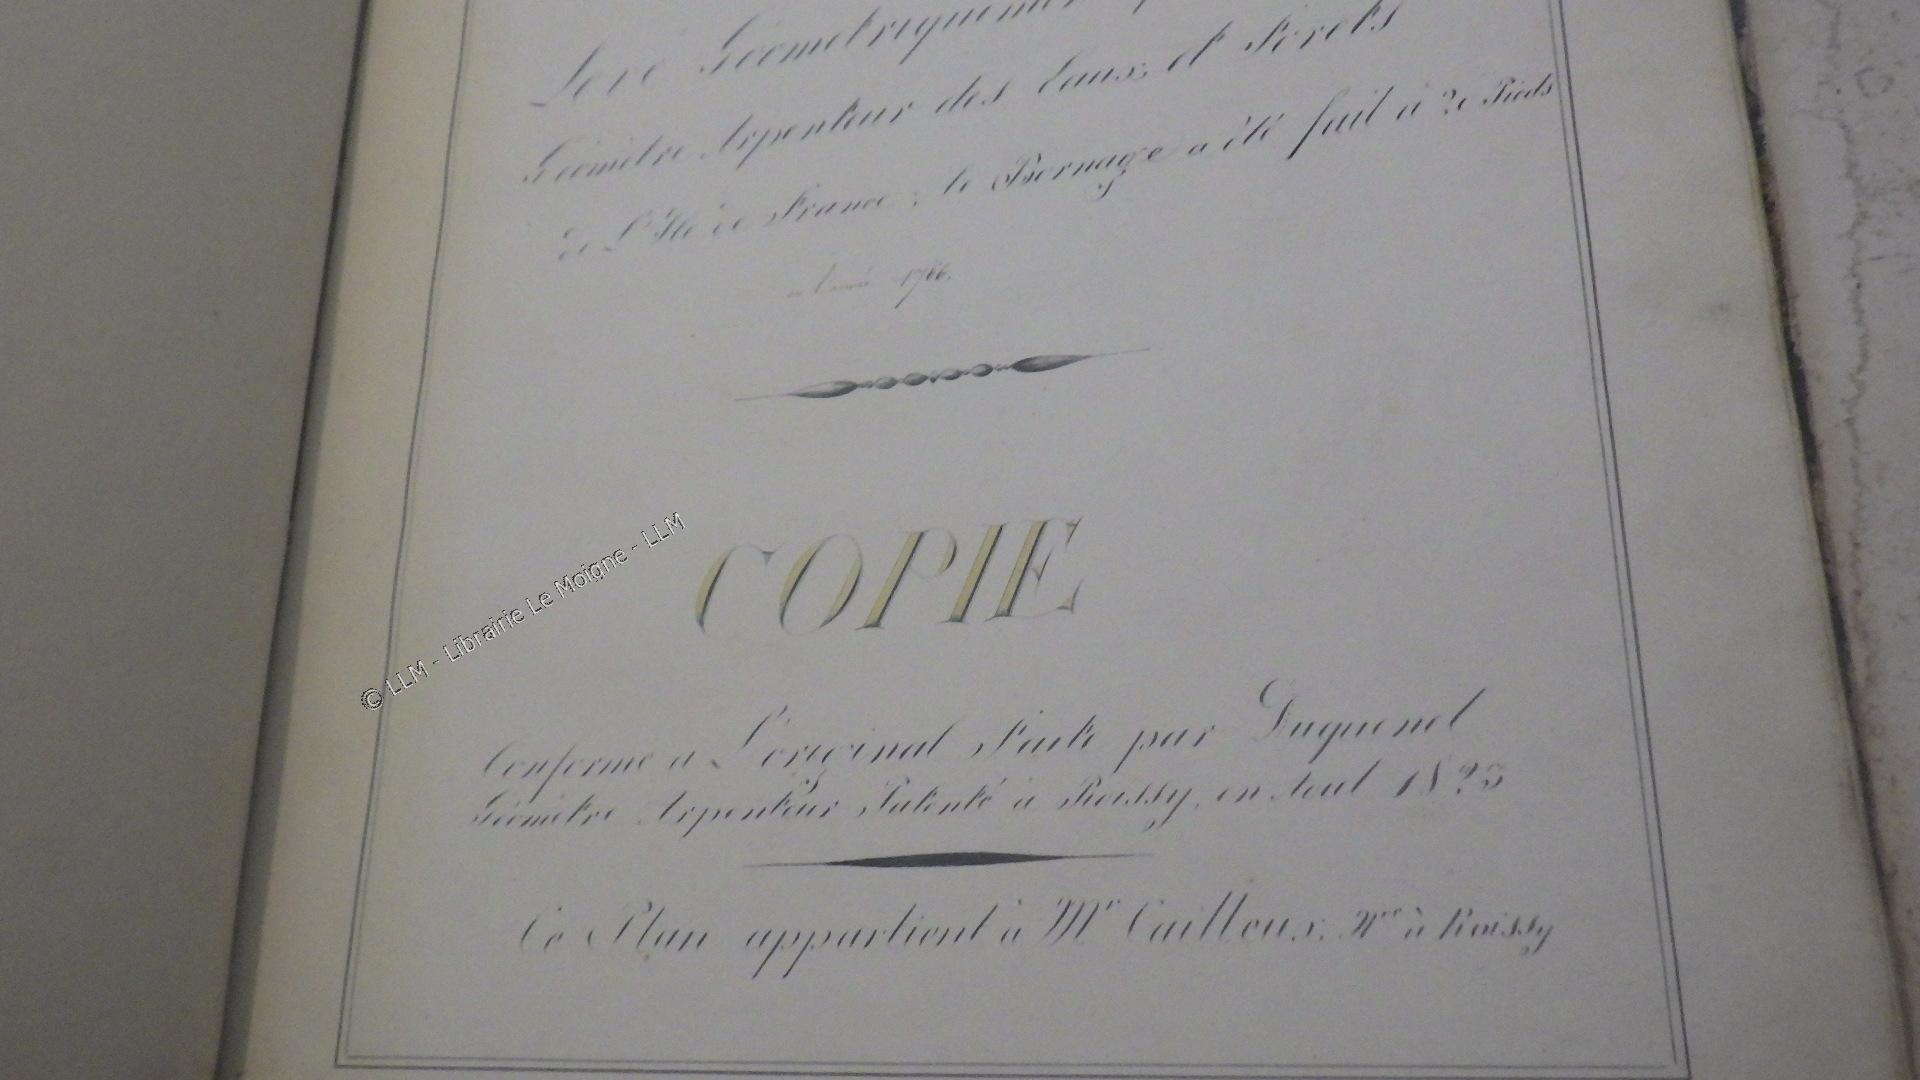 Levé Géométriquement
Géomètre Arpenteur des Eaux et Forêts
de L'Ile de France; le Bornage a été fait à 20 Pieds
en l'année 1786.
COPIE
© LLM - Librairie Le Moigne - LLM
Conforme a L'original Faite par Duquenel
Géomètre Arpenteur Patenté à Roissy, en Aout 1823
Ce Plan appartient à Mr Cailleux, Nre à Roissy